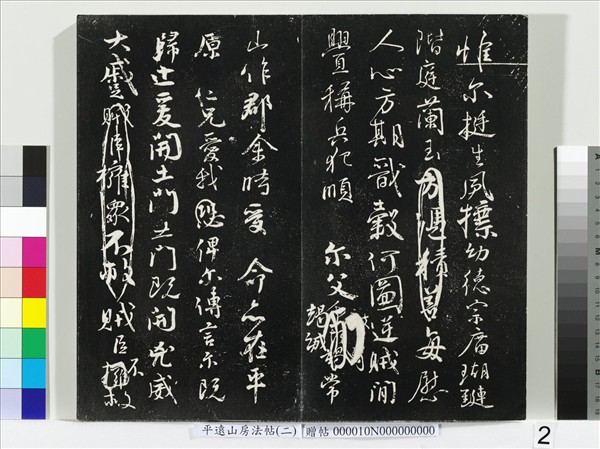 惟爾挺生夙摽幼德宗廟瑚璉
階庭蘭玉方憑積善每慰
人心方期戩穀何圖逆賊閒
舋稱兵犯順 爾父
竭誠
常
山作郡余時受 命亦在平
原 仁兄愛我 俾爾傳言爾既
歸止爰開土門土門既開兇威
大蹙賊臣擁眾不救賊臣不擁救
平遠山房法帖(二) 贈帖 000010N000000000
2